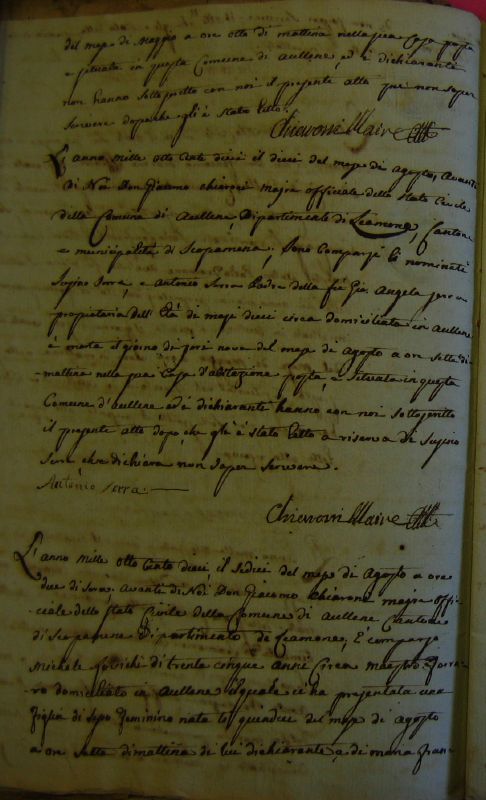 del mese di Maggio a ore otto di mattina nella sua Casa posta
e situata in questa Comune di Aullene ed è dichiarante
non hanno sottoscritto con noi il presente atto per non saper
scrivere dopo che gli è stato letto.
Chiaroni Maire
L'anno mille otto Cento dieci il dieci del mese di Agosto, Avanti
di Noi Don Giacomo Chiaroni majre officiale dello stato Civile
della Comuna di Aullene, Dipartimento di Liamone, Cantone
e municipalità di Scopamena, Sono Comparsi li nominati
Serra, e Antonio Serra Padre della fu Gio. Angela Serra
propietaria dell'Età di mesi dieci circa domiciliata in Aullene
è morta il giorno di jeri nove del mese di Agosto a ore sette di
mattina nella sua Casa d'abitazione posta, e situata in questa
Comune d'aullene ed è dichiarante hanno con noi sottoscritto
il presente atto dopo che gli è stato letto a riserva di
Serra che dichiara non saper scrivere.
Antonio Serra
Chiaroni Maire
L'anno mille otto Cento dieci, il sedici del mese di Agosto a ore
dieci di sera. avanti di Noi Don Giacomo Chiarone majre offi-
ciale dello stato Civile della Comune di Aullene Cantone
di Scopamene Dipartimento de Liamone, È comparso
Michele di trenta cinque anni Circa maestro ferra-
ro domiciliato in Aullene il quale ci ha presentata una
figlia di sesso feminino nata li quindici del mese di agosto
a ore sette di mattina di lui dichiarante e di maria fran-